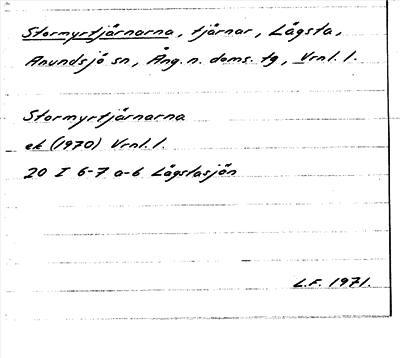 Stormyrtjärnarna, tjärnar, Lägsta,
Anundsjö sn, Ång. n. doms. tg, Vrnl. 1.
Stormyrtjärnarna
ek (1970) Vrnl. 1.
20 I 6-7 a-b Lägstasjön
L.F. 1971.